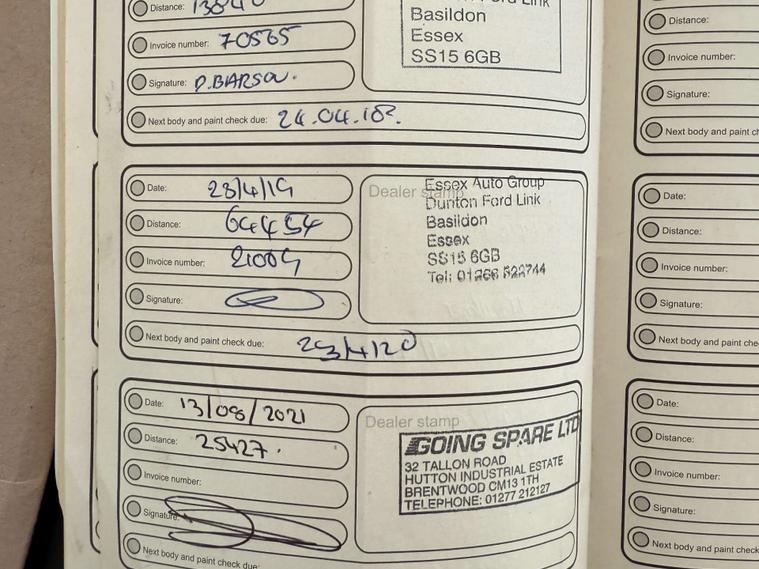 Distance:
Invoice number: 70565
Signature: P.BARSOU.
Next body and paint check due: 24.04.18.
Ford Link
Basildon
Essex
SS15 6GB
Date: 23/4/19
Distance: 64454
Invoice number: 21009
Signature:
Next body and paint check due: 23/4/20
Dealer stamp
Essex Auto Group
Dunton Ford Link
Basildon
Essex
SS15 6GB
Tel: 01268 522744
Date: 13/08/2021
Distance: 25427.
Invoice number:
Signature:
Next body and paint check due:
Dealer stamp
GOING SPARE LTD
32 TALLON ROAD
HUTTON INDUSTRIAL ESTATE
BRENTWOOD CM13 1TH
TELEPHONE: 01277 212127
Distance:
Invoice number:
Signature:
Next body and paint
Date:
Distance:
Invoice number:
Signature:
Next body and paint
Date:
Distance:
Invoice number:
Signature:
Next body and paint